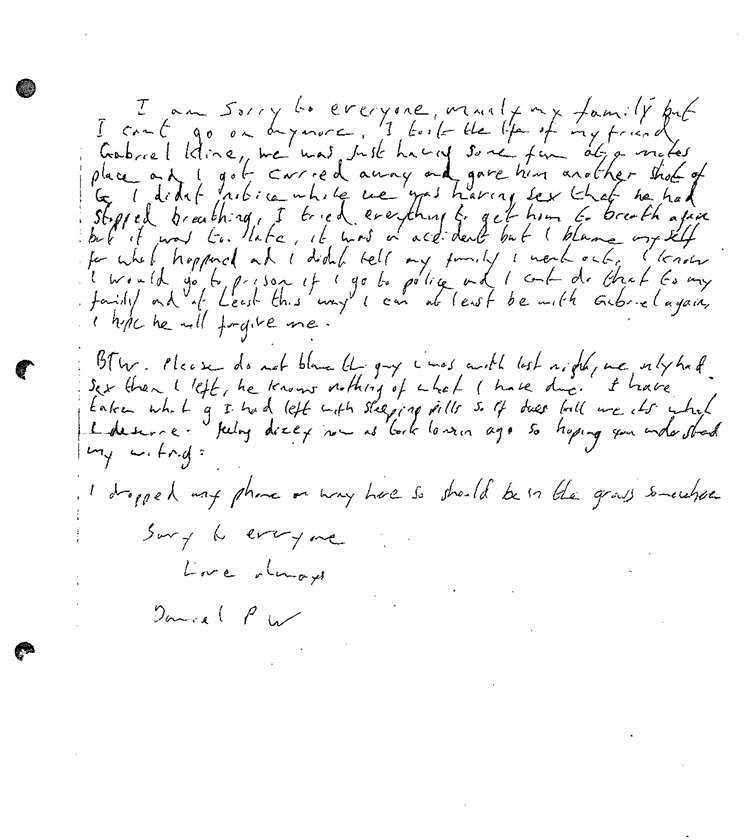 I am Sorry to everyone, mainly my family but
I cant go on anymore, I took the life of my friend
Gabriel Kline, we was just having some fun at a mates
place and I got carried away and gave him another shot of
G, I didnt notice while we was having sex that he had
Stopped breathing, I tried everything to get him to breath again
but it was to late, it was a accident but I blame myself
for what happened and I didnt tell my family I went out. I know
I would go to prison if I go to police and I cant do that to my
family and at least this way I can at least be with Gabriel again,
I hope he will forgive me.
BTW. Please do not blame the guy i was with last night, we only had
sex then I left, he knows nothing of what I have done. I have
taken what g I had left with sleeping pills so if it does kill me its what
I deserve. feeling dizzy now as took 10 min ago so hoping you understand
my writing.
I dropped my phone on way here so should be in the grass somewhere
Sorry to everyone
Love always
Daniel P W